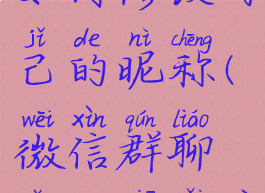 jǐ de nì chēng
己的昵称(
wēi xìn qún liáo
微信群聊